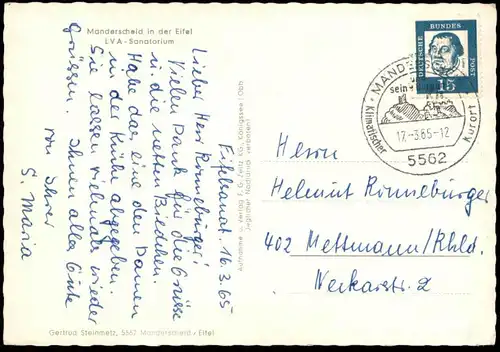 Manderscheid in der Eifel
LVA-Sanatorium
Eifelsanat. 16.3.65
Lieber Herr Rönneburger!
Vielen Dank für die Grüsse
u. die netten Bildchen.
Habe das eine den Damen
in der Küche abgegeben.
Sie lassen vielmals wieder
Grüssen. Ihnen alles Gute
von Ihrer
S. Maria
Gertrud Steinmetz, 5562 Manderscheid - Eifel
Aufnahme u. Verlag
Jeglicher Nachdruck verboten!
DEUTSCHE BUNDESPOST
15
MANDERSCHEID
Klimatischer Kurort
17.-3.65-12
5562
Herrn
Helmut Rönneburger
402 Mettmann/Rhld.
Neckarstr. 2